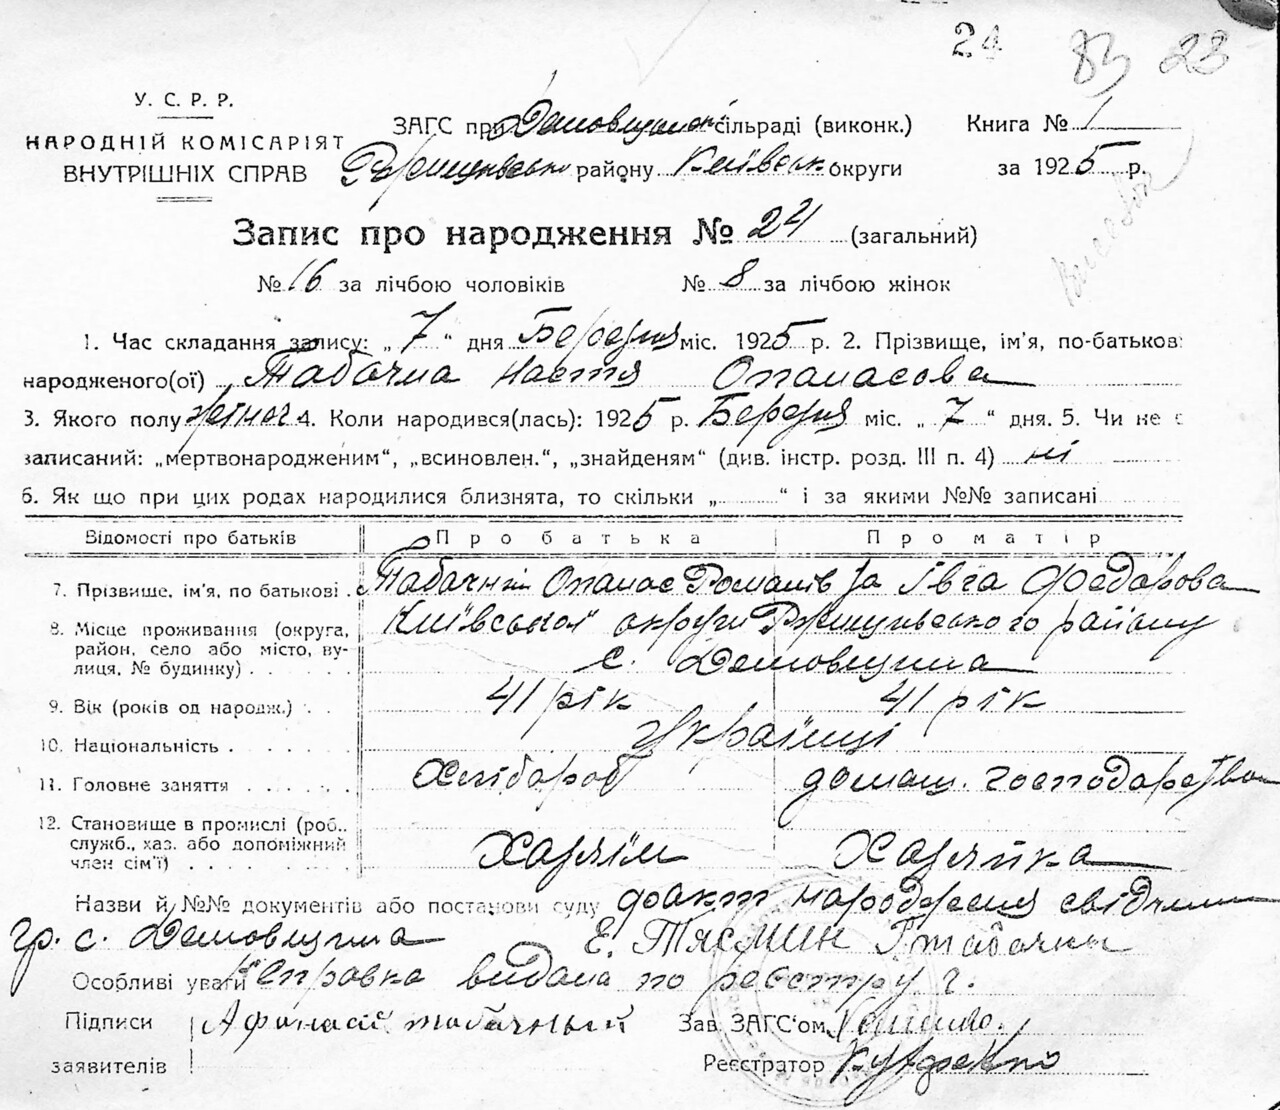 24 83 23
У. С. Р. Р.
НАРОДНІЙ КОМІСАРІЯТ
ВНУТРІШНІХ СПРАВ
ЗАГС при Демовщинськ сільраді (виконк.) Книга № 1
Ржищівсько району Київськ округи за 1925 р.
Запис про народження № 24 (загальний)
№ 16 за лічбою чоловіків № 8 за лічбою жінок
1. Час складання запису: „ 7 “ дня Березня міс. 1925 р. 2. Прізвище, ім'я, по-батьков
народженого(ої) Табачна Настя Опанасова
3. Якого полу жіноч 4. Коли народився(лась): 1925 р. Березня міс. „ 7 “ дня. 5. Чи не є
записаний: „мертвонародженим“, „всиновлен.“, „знайденям“ (див. інстр. розд. III п. 4) ні
6. Як що при цих родах народилися близнята, то скільки „ “ і за якими №№ записані
Відомості про батьків Про батька Про матір
7. Прізвище, ім'я, по батькові . Табачний Опанас Романів та Івга Федорова
8. Місце проживання (округа, район, село або місто, вулиця, № будинку) Київської округи Ржищівського району
с. Демовщина
9. Вік (років од народж.) 41 рік 41 рік
10. Національність Українці
11. Головне заняття Хлібороб домаш. господарство
12. Становище в промислі (роб., служб., хаз. або допоміжний член сім'ї) Хазяїн Хазяйка
Назви й №№ документів або постанови суду факт народження свідчили
гр. с. Демовщина Е. Тясмин Г Табачн
Особливі уваги Справка видана по реєстру
Підписи Афанасій табачный Зав. ЗАГС'ом
заявителів Реєстратор